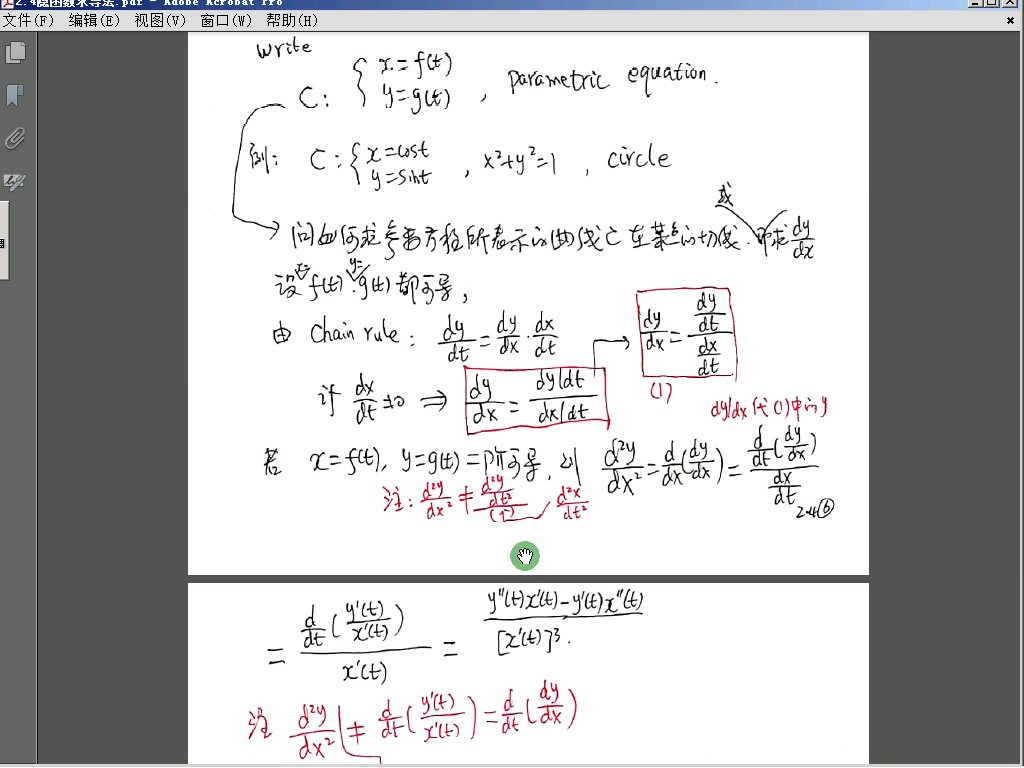 2.4隐函数求导法.pdf - Adobe Acrobat Pro
文件(F) 编辑(E) 视图(V) 窗口(W) 帮助(H)
write
C: { x=f(t) y=g(t) , parametric equation.
例: C: { x=cost y=sint , x²+y²=1 , circle
或
问如何求参数方程所表示的曲线C在某点的切线. 即求 dy/dx
x= y=
设 f(t), g(t) 都可导,
由 Chain rule: dy/dt = dy/dx · dx/dt
dy/dx = (dy/dt)/(dx/dt)
(1)
if dx/dt ≠0 ⇒ dy/dx = (dy/dt)/(dx/dt)
dy/dx 代(1)中的y
若 x=f(t), y=g(t) 二阶可导, 则 d²y/dx² = d/dx(dy/dx) = (d/dt(dy/dx))/(dx/dt)
注: d²y/dx² ≠ (d²y/dt²)/(↑) d²x/dt²
2-4⑥
= (d/dt(y'(t)/x'(t)))/x'(t) = (y''(t)x'(t)-y'(t)x''(t))/[x'(t)]³.
注 d²y/dx² ≠ d/dt(y'(t)/x'(t)) = d/dt(dy/dx)